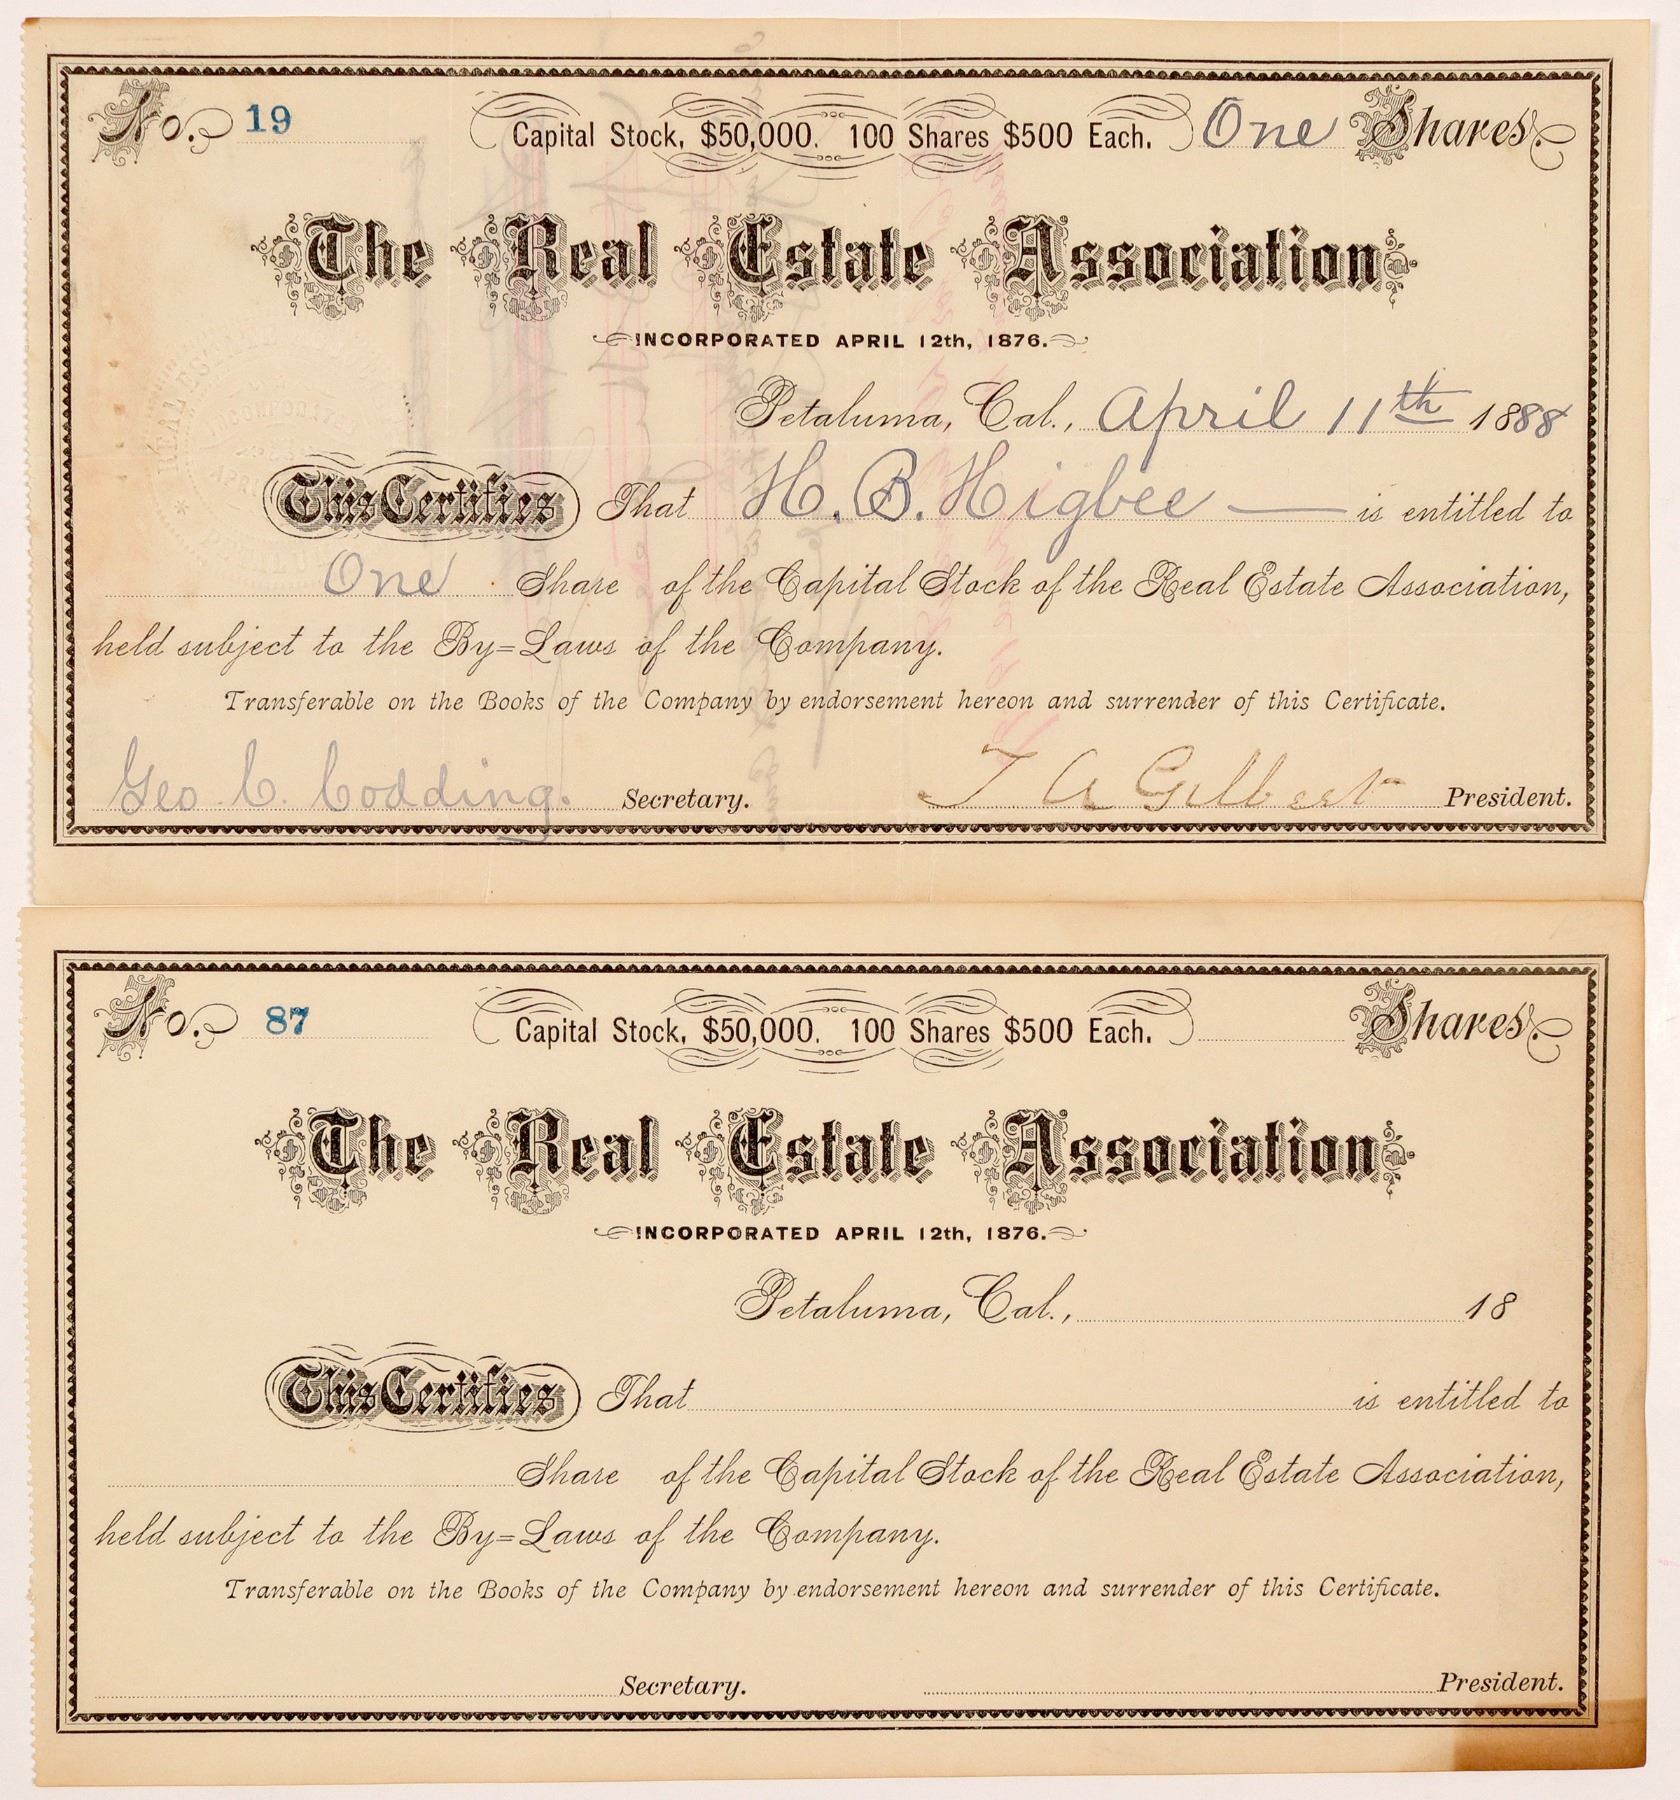 No. 19 Capital Stock, $50,000. 100 Shares $500 Each. One Shares.
The Real Estate Association
INCORPORATED APRIL 12th, 1876.
Petaluma, Cal., April 11th 1888
This Certifies That H. B. Higbee is entitled to
One Share of the Capital Stock of the Real Estate Association,
held subject to the By=Laws of the Company.
Transferable on the Books of the Company by endorsement hereon and surrender of this Certificate.
Geo. C. Codding. Secretary. T A Gilbert President.
No. 87 Capital Stock, $50,000. 100 Shares $500 Each. Shares.
The Real Estate Association
INCORPORATED APRIL 12th, 1876.
Petaluma, Cal., 18
This Certifies That is entitled to
Share of the Capital Stock of the Real Estate Association,
held subject to the By=Laws of the Company.
Transferable on the Books of the Company by endorsement hereon and surrender of this Certificate.
Secretary. President.